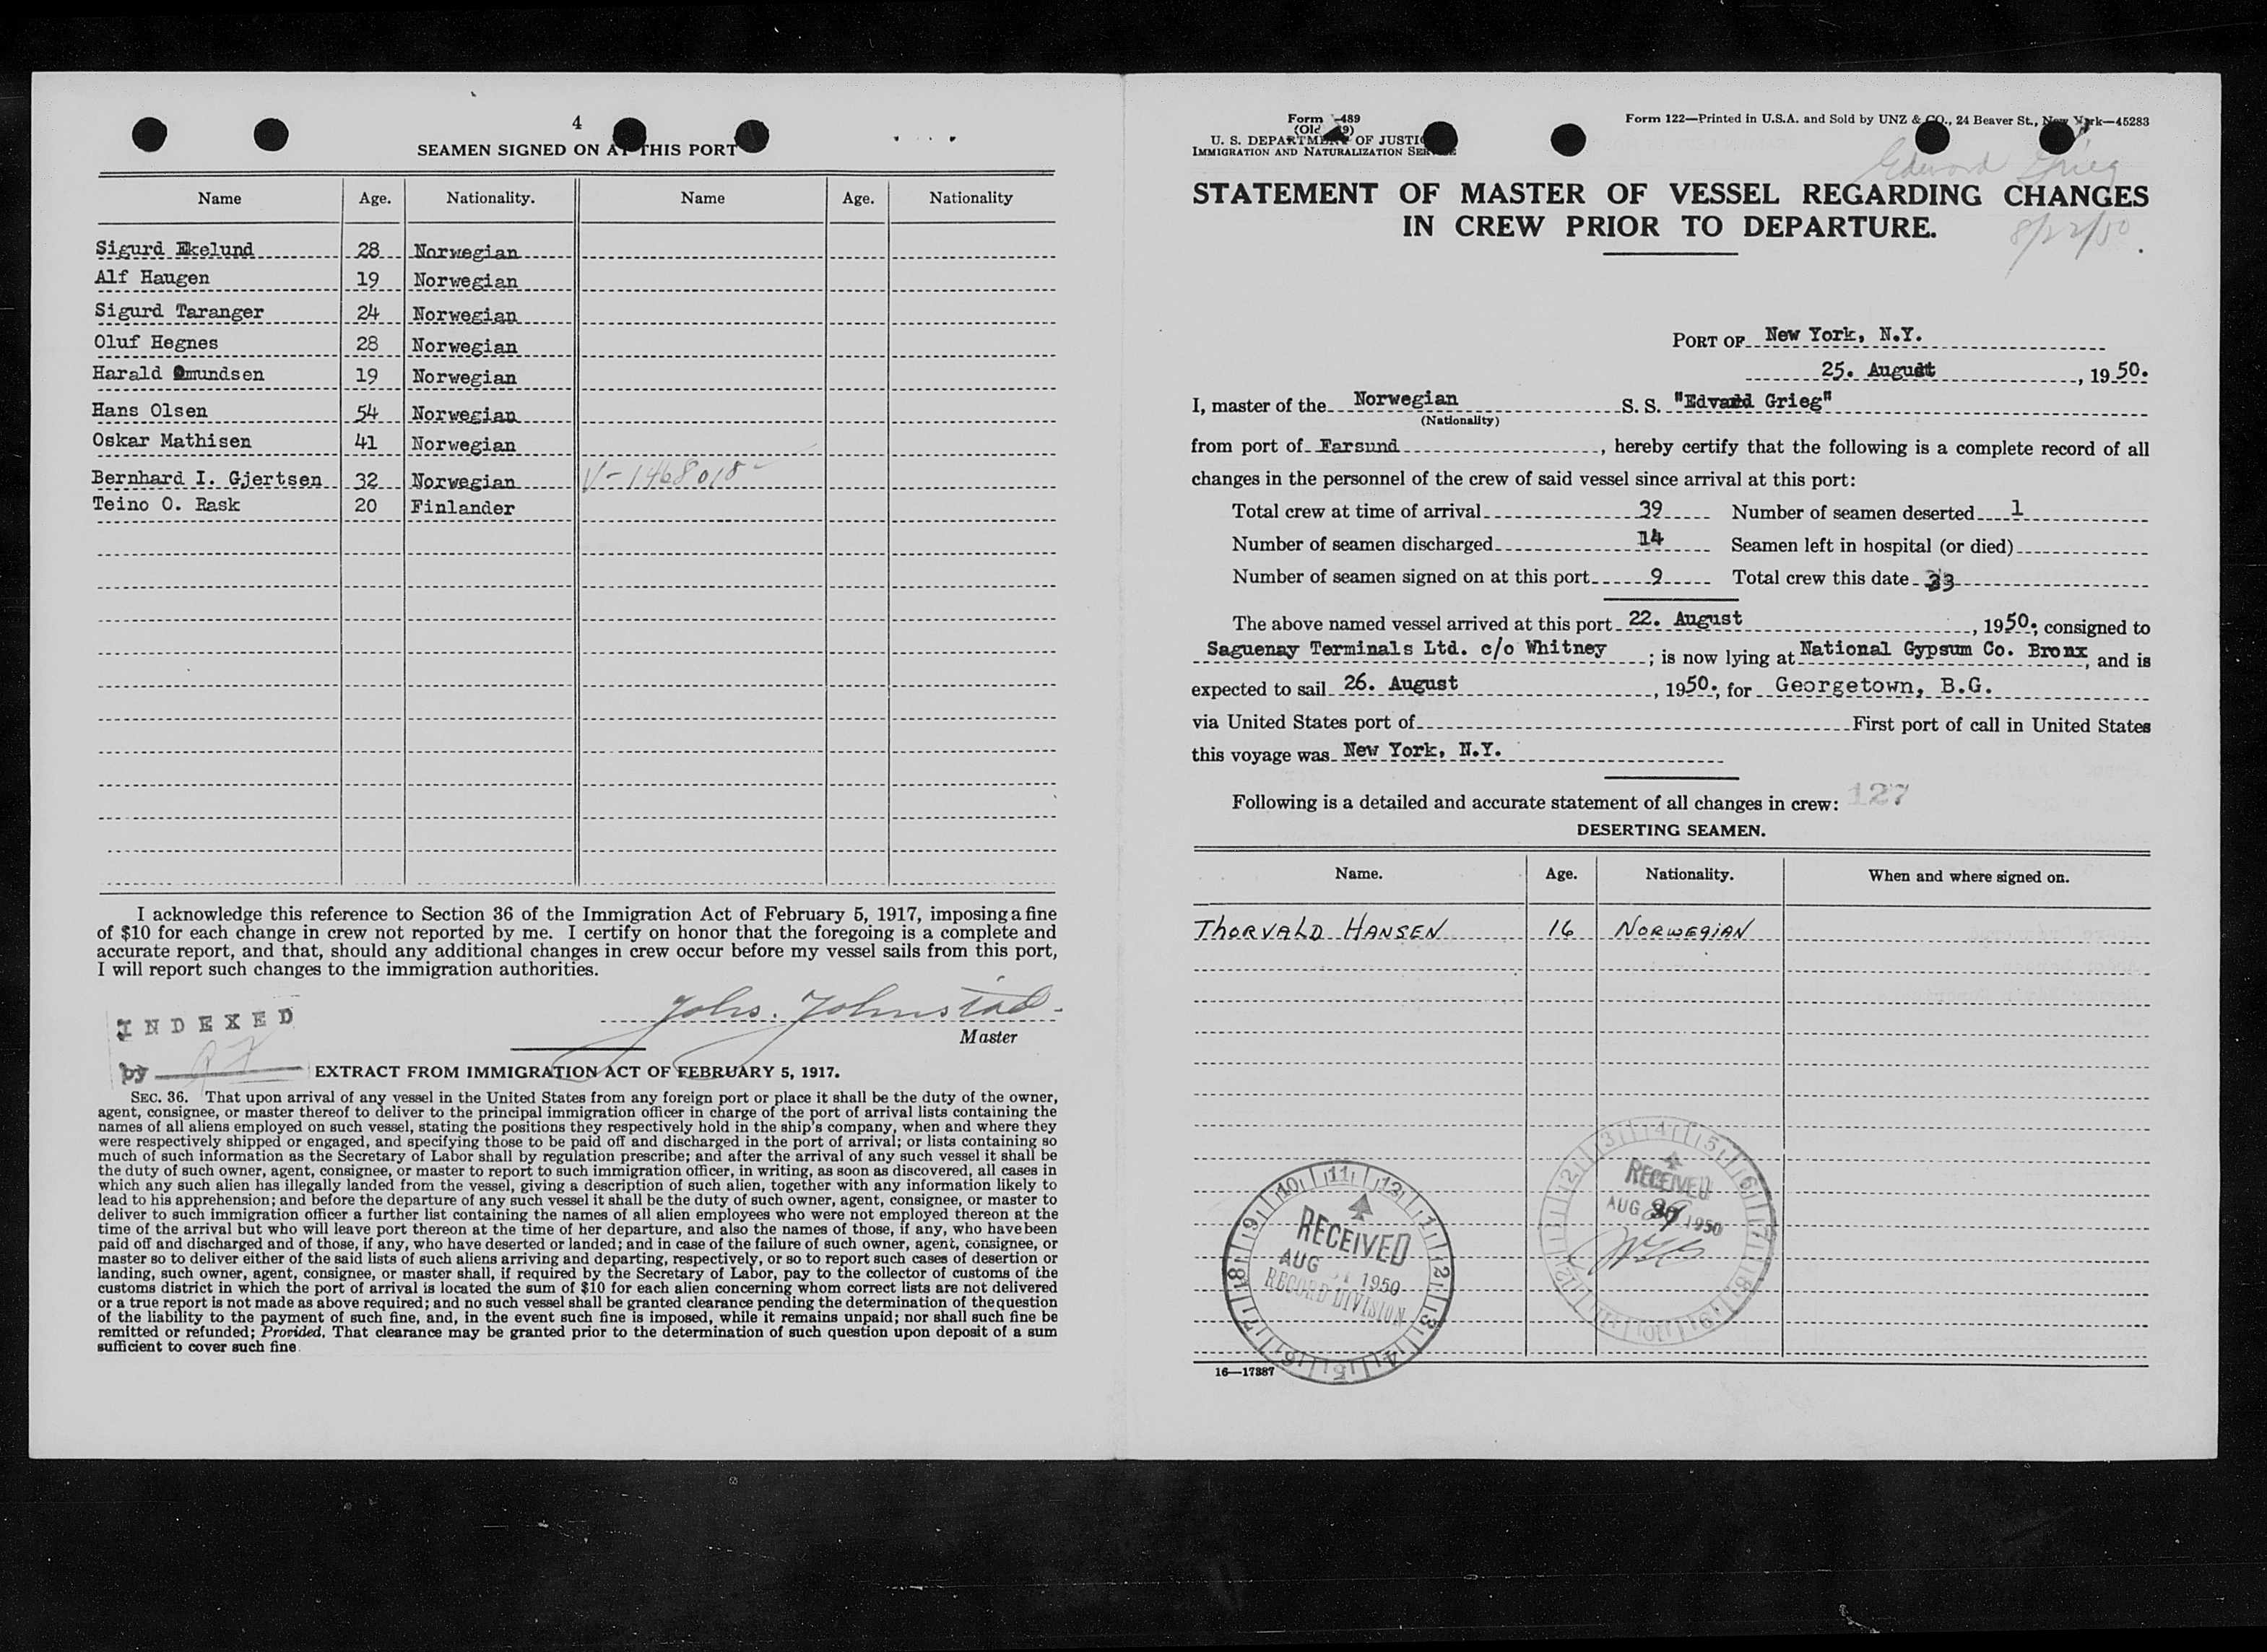 4
SEAMEN SIGNED ON AT THIS PORT
Name Age. Nationality. Name Age. Nationality
Sigurd Ekelund 28 Norwegian
Alf Haugen 19 Norwegian
Sigurd Taranger 24 Norwegian
Oluf Hegnes 28 Norwegian
Harald Omundsen 19 Norwegian
Hans Olsen 54 Norwegian
Oskar Mathisen 41 Norwegian
Bernhard I. Gjertsen 32 Norwegian V-1468018
Teino O. Rask 20 Finlander
I acknowledge this reference to Section 36 of the Immigration Act of February 5, 1917, imposing a fine
of $10 for each change in crew not reported by me. I certify on honor that the foregoing is a complete and
accurate report, and that, should any additional changes in crew occur before my vessel sails from this port,
I will report such changes to the immigration authorities.
Johs. Johnstad
Master
INDEXED
by
EXTRACT FROM IMMIGRATION ACT OF FEBRUARY 5, 1917.
SEC. 36. That upon arrival of any vessel in the United States from any foreign port or place it shall be the duty of the owner,
agent, consignee, or master thereof to deliver to the principal immigration officer in charge of the port of arrival lists containing the
names of all aliens employed on such vessel, stating the positions they respectively hold in the ship's company, when and where they
were respectively shipped or engaged, and specifying those to be paid off and discharged in the port of arrival; or lists containing so
much of such information as the Secretary of Labor shall by regulation prescribe; and after the arrival of any such vessel it shall be
the duty of such owner, agent, consignee, or master to report to such immigration officer, in writing, as soon as discovered, all cases in
which any such alien has illegally landed from the vessel, giving a description of such alien, together with any information likely to
lead to his apprehension; and before the departure of any such vessel it shall be the duty of such owner, agent, consignee, or master to
deliver to such immigration officer a further list containing the names of all alien employees who were not employed thereon at the
time of the arrival but who will leave port thereon at the time of her departure, and also the names of those, if any, who have been
paid off and discharged and of those, if any, who have deserted or landed; and in case of the failure of such owner, agent, consignee, or
master so to deliver either of the said lists of such aliens arriving and departing, respectively, or so to report such cases of desertion or
landing, such owner, agent, consignee, or master shall, if required by the Secretary of Labor, pay to the collector of customs of the
customs district in which the port of arrival is located the sum of $10 for each alien concerning whom correct lists are not delivered
or a true report is not made as above required; and no such vessel shall be granted clearance pending the determination of the question
of the liability to the payment of such fine, and, in the event such fine is imposed, while it remains unpaid; nor shall such fine be
remitted or refunded; Provided, That clearance may be granted prior to the determination of such question upon deposit of a sum
sufficient to cover such fine.
Form -489
(Old 9)
U. S. DEPARTMENT OF JUSTICE
IMMIGRATION AND NATURALIZATION SERVICE
Form 122—Printed in U.S.A. and Sold by UNZ & CO., 24 Beaver St., New York—45283
Edward Grieg
STATEMENT OF MASTER OF VESSEL REGARDING CHANGES
IN CREW PRIOR TO DEPARTURE.
8/22/50
PORT OF New York, N.Y.
25. August, 1950.
I, master of the Norwegian S. S. "Edvard Grieg"
(Nationality)
from port of Farsund, hereby certify that the following is a complete record of all
changes in the personnel of the crew of said vessel since arrival at this port:
Total crew at time of arrival 39 Number of seamen deserted 1
Number of seamen discharged 14 Seamen left in hospital (or died)
Number of seamen signed on at this port 9 Total crew this date 33
The above named vessel arrived at this port 22. August, 1950.; consigned to
Saguenay Terminals Ltd. c/o Whitney; is now lying at National Gypsum Co. Bronx, and is
expected to sail 26. August, 1950.; for Georgetown, B.G.
via United States port of First port of call in United States
this voyage was New York, N.Y.
Following is a detailed and accurate statement of all changes in crew: 127
DESERTING SEAMEN.
Name. Age. Nationality. When and where signed on.
THORVALD HANSEN 16 NORWEGIAN
RECEIVED
AUG 1950
RECORD DIVISION
RECEIVED
AUG 1950
16—17387